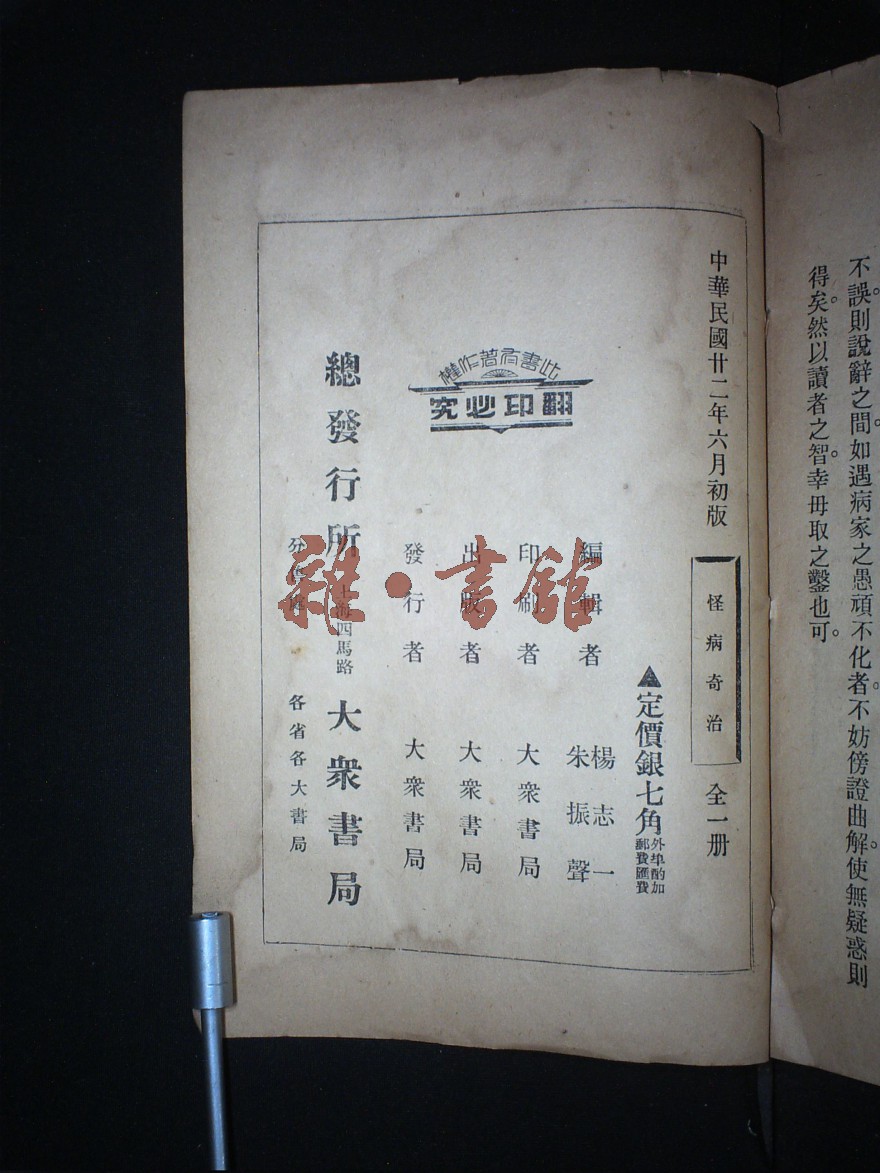 不誤則說辭之間。如遇病家之愚頑不化者。不妨傍證曲解。使無疑惑則
得矣。然以讀者之智。幸毋取之鑿也可。
中華民國廿二年六月初版
怪病奇治
全一册
▲定價銀七角
外埠酌加
郵費匯費
編輯者
楊志一
朱振聲
印刷者 大衆書局
出版者 大衆書局
發行者 大衆書局
此書有著作權
翻印必究
總發行所 上海四馬路 大衆書局
分售處 各省各大書局
雜·書館